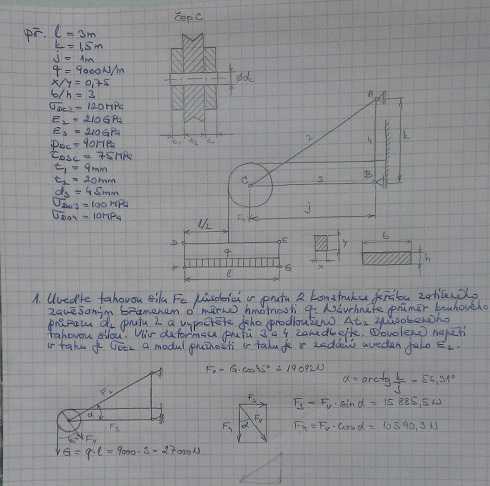 čep C
př. l = 3m
k = 1,5m
j = 1m
q = 9000N/m
x/y = 0,75
b/h = 3
σDC2 = 120MPa
E2 = 210GPa
E3 = 210GPa
pDC = 90MPa
τDSC = 75MPa
t1 = 9mm
t2 = 20mm
d3 = 45mm
= 100MPa
= 10MPa
ød
A
2
k
C
3
B
j
l/2
y
x
b
h
q
G
l
1. Uveďte tahovou sílu F2 působící v prutu 2 konstrukce jeřábu zatíženého
zavěšeným břemenem o měrné hmotnosti q. Navrhněte průměr kruhového
průřezu d2 prutu 2 a vypočtěte jeho prodloužení Δl2 způsobeného
tahovou silou. Vliv deformace prutů 3 a 4 zanedbejte. Dovolené napětí
v tahu je σDC2 a modul pružnosti v tahu je v zadání uveden jako E2.
FV = G·cos45° = 19092N
α = arctg k/j = 56,31°
F3 = FV·sinα = 15885,5N
F4 = FV·cosα = 10590,3N
F2
α
F3
FV
G = q·l = 9000·3 = 27000N